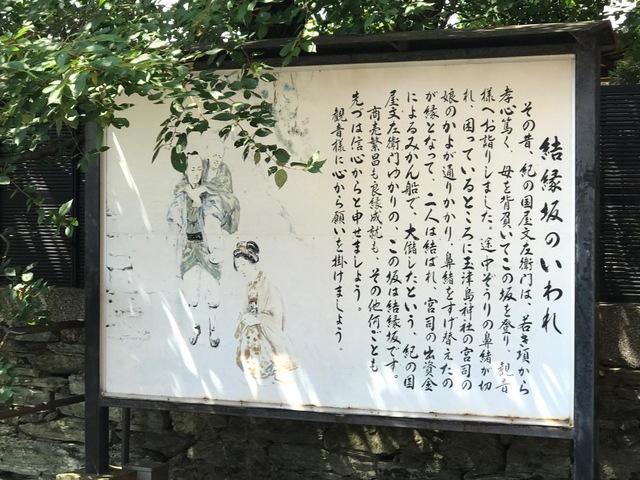 結縁坂のいわれ
その昔、紀の国屋文左衛門は、若き頃から
孝心篤く、母を背負いてこの坂を登り、観音
様へお詣りしました。途中ぞうりの鼻緒が切
れ、困っているところに玉津島神社の宮司の
娘のかよが通りかかり、鼻緒をすけ替えたの
が縁となって、二人は結ばれ、宮司の出資金
によるみかん船で、大儲したという、紀の国
屋文左衛門ゆかりの、この坂は結縁坂です。
商売繁昌も良縁成就も、その他何ごとも
先づは信心からと申せましょう。
観音様に心から願いを掛けましょう。